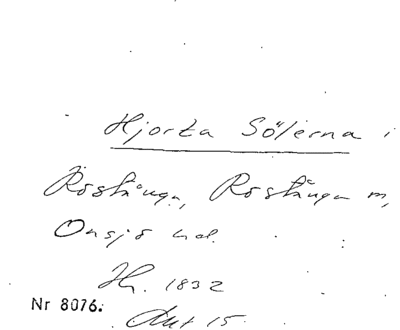 Hjorta Sölerna i
Röstånga, Röstånga m,
Onsjö hd.
Hr. 1832
Nr 8076.
Akt 15.